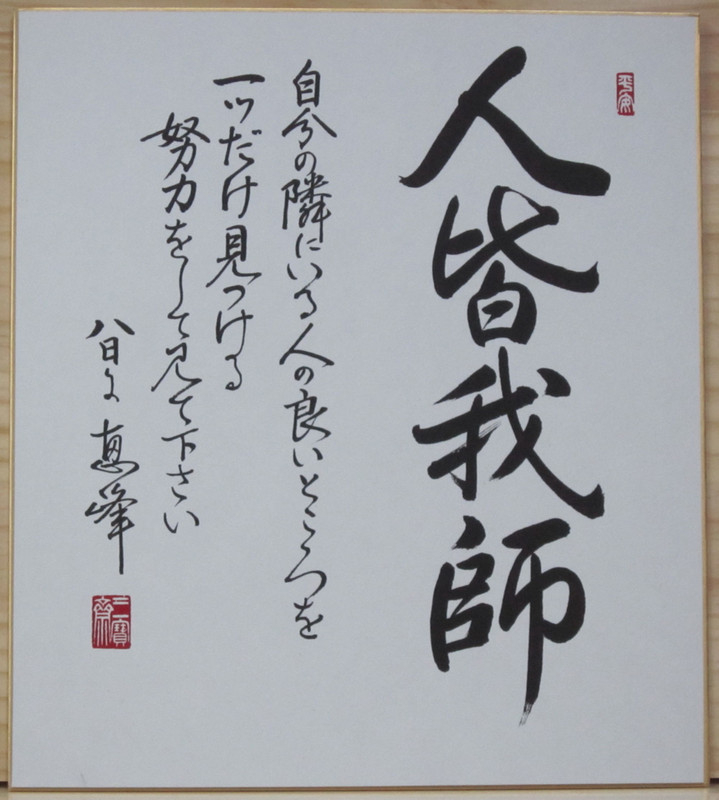 平安
人皆我師
自分の隣にいる人の良いところを
一ツだけ見つける
努力をして見て下さい
恵峰